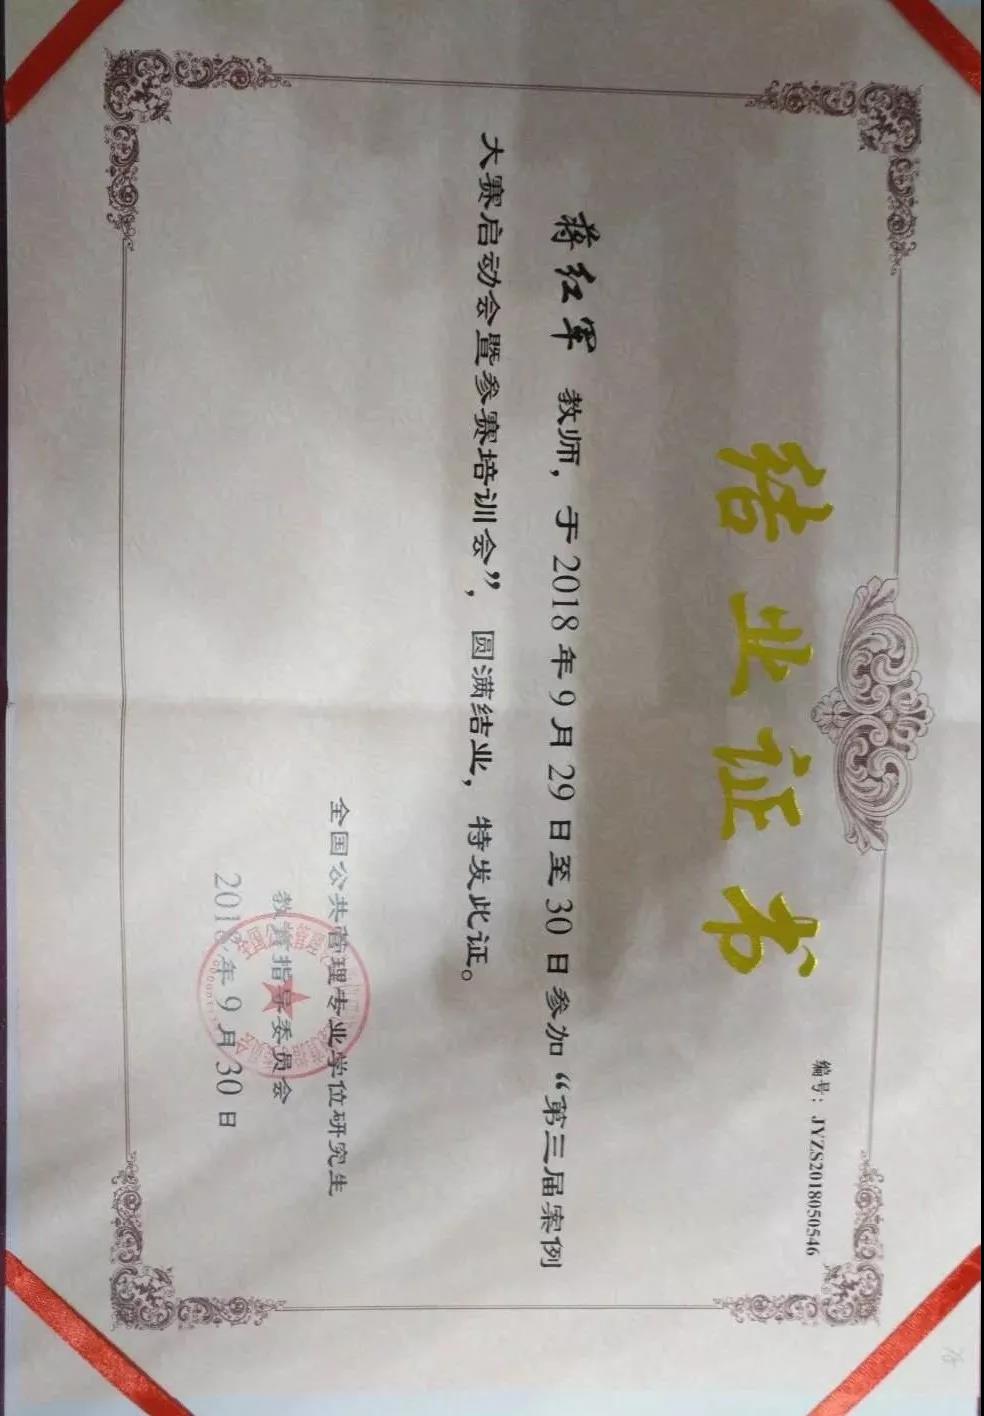 结业证书
编号：JYZS2018050546
蒋红军 教师，于2018年9月29日至30日参加“第三届案例
大赛启动会暨参赛培训会”，圆满结业，特发此证。
全国公共管理专业学位研究生
教育指导委员会
2018年9月30日